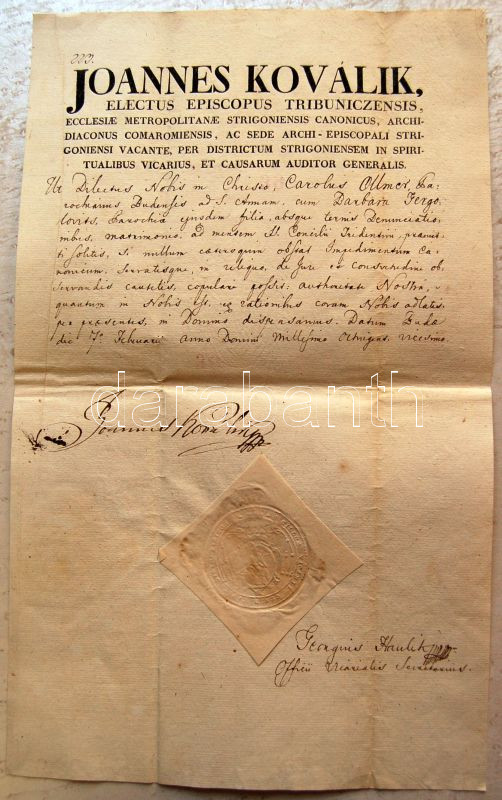 JOANNES KOVÁLIK,
ELECTUS EPISCOPUS TRIBUNICZENSIS,
ECCLESIÆ METROPOLITANÆ STRIGONIENSIS CANONICUS, ARCHI-
DIACONUS COMAROMIENSIS, AC SEDE ARCHI-EPISCOPALI STRI-
GONIENSI VACANTE, PER DISTRICTUM STRIGONIENSEM IN SPIRI-
TUALIBUS VICARIUS, ET CAUSARUM AUDITOR GENERALIS.
Ut Dilectus Nobis in Christo, Carolus Ollmer, Pa-
rochianus Budensis ad S. Annam, cum Barbara Gergo-
lovits, Parochiæ ejusdem filia, absque ternis Denunciatio-
nibus, matrimonio, ad mentem Concilii Tridentini, præmit-
ti solitis, si nullum cæteroquin obstat Impedimentum Ca-
nonicum, Servatisque, in reliquo, de Jure et consvetudine ob-
servandis cautelis, copulari possit: authoritate Nostra,
quantum in Nobis est, ex rationibus coram Nobis adlatis,
per præsentes, in Domino dispensamus. Datum Budæ
die Februarii anno Domini Millesimo Octingent. vicesimo
darabanth
Joannes Kovalik
Georgius Haulik
Officii Vicarialis Secretarius